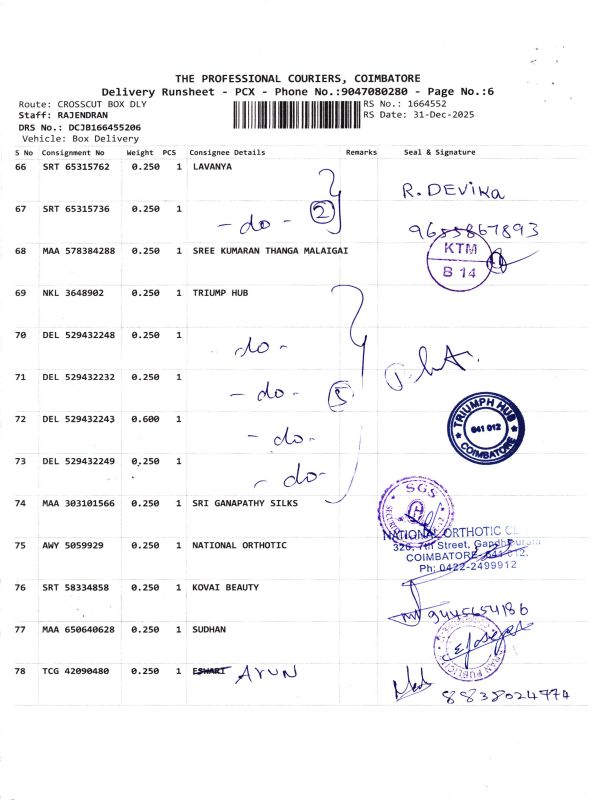 THE PROFESSIONAL COURIERS, COIMBATORE
Delivery Runsheet - PCX - Phone No.:9047080280 - Page No.:6
Route: CROSSCUT BOX DLY RS No.: 1664552
Staff: RAJENDRAN RS Date: 31-Dec-2025
DRS No.: DCJB166455206
Vehicle: Box Delivery
S No Consignment No Weight PCS Consignee Details Remarks Seal & Signature
66 SRT 65315762 0.250 1 LAVANYA
R. DEVIKA
67 SRT 65315736 0.250 1 - do - 2
9655867893
68 MAA 578384288 0.250 1 SREE KUMARAN THANGA MALAIGAI
KTM
B 14
69 NKL 3648902 0.250 1 TRIUMP HUB
70 DEL 529432248 0.250 1 do -
71 DEL 529432232 0.250 1 - do - 5
72 DEL 529432243 0.600 1 - do -
TRIUMPH HUB
641 012
COIMBATORE
73 DEL 529432249 0,250 1 - do -
74 MAA 303101566 0.250 1 SRI GANAPATHY SILKS
SGS
75 AWY 5059929 0.250 1 NATIONAL ORTHOTIC
NATIONAL ORTHOTIC
326, 7th Street, Gandhipuram
COIMBATORE-641 012.
Ph: 0422-2499912
76 SRT 58334858 0.250 1 KOVAI BEAUTY
9445654186
77 MAA 650640628 0.250 1 SUDHAN
PUBLIC
78 TCG 42090480 0.250 1 ESWARI ARUN
8838024774